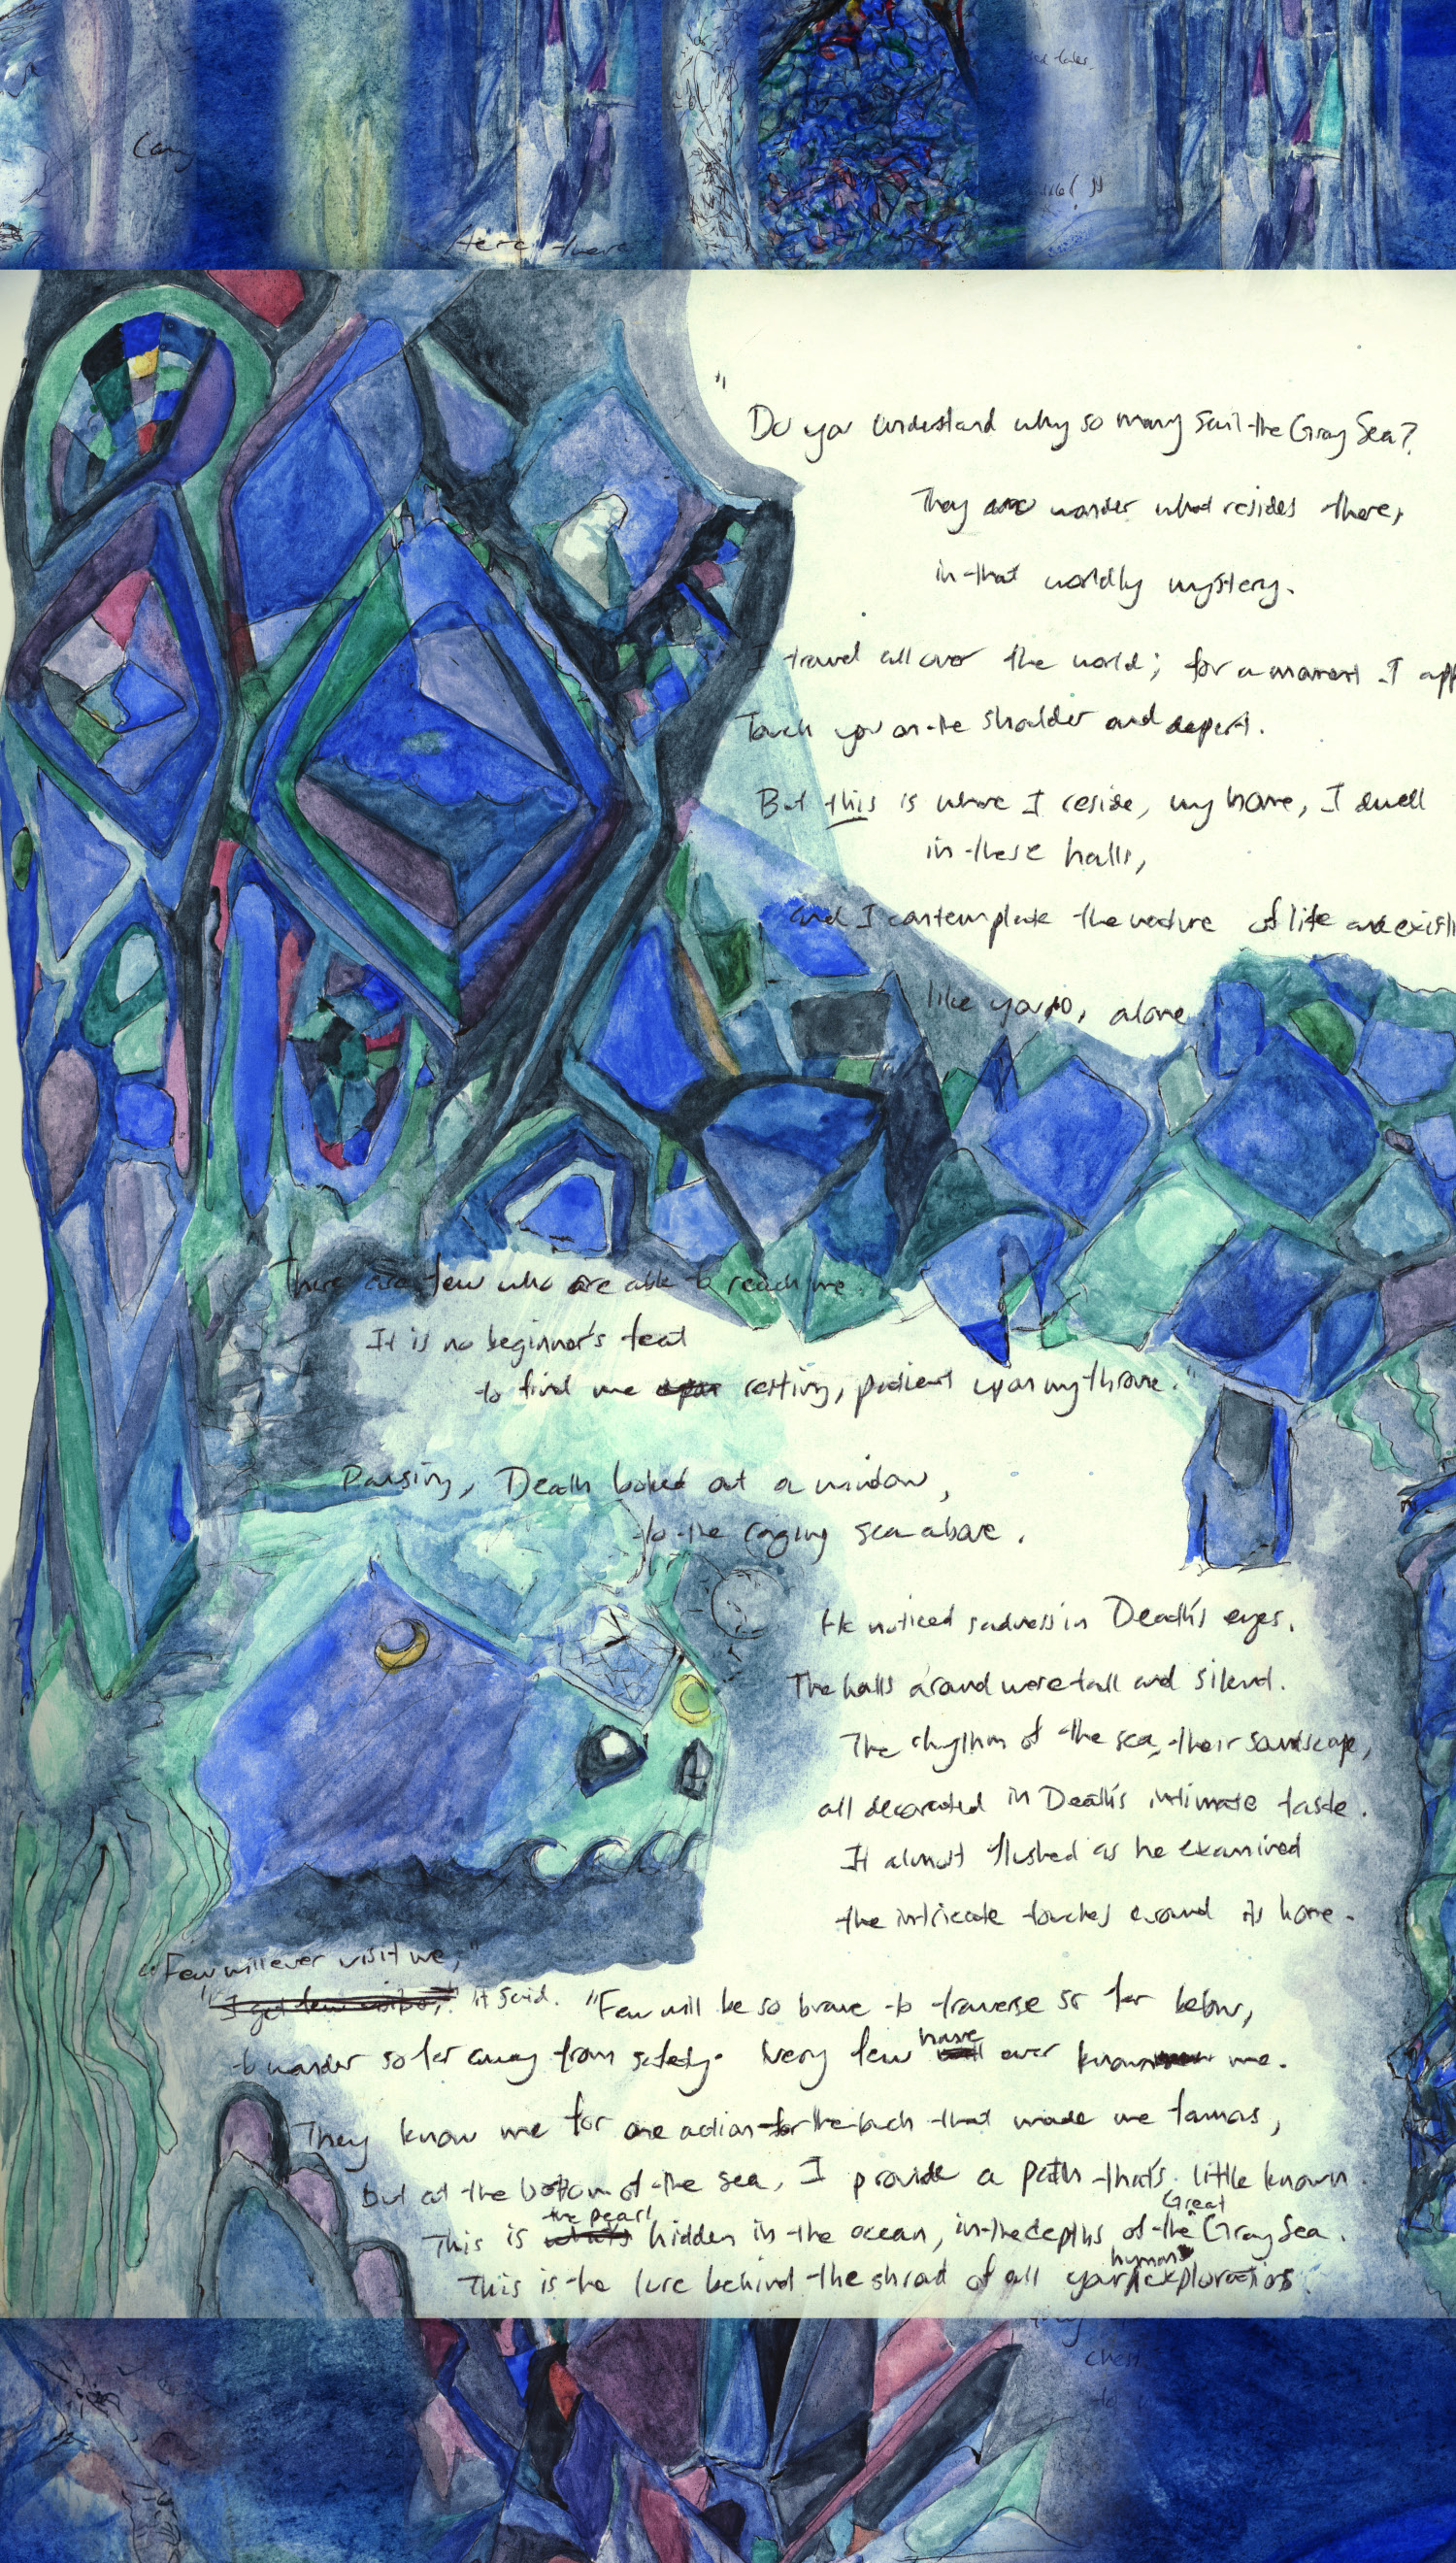 Here, there
"Do you understand why so many sail the Gray Sea?
They wonder what resides there,
in that worldly mystery.
I travel all over the world; for a moment I app
Touch you on the shoulder and depart.
But this is where I reside, my home, I dwell
in these halls,
and I contemplate the nature of life and exist
like you do, alone.
There are few who are able to reach me.
It is no beginner's feat
to find me resting, patient upon my throne."
Pausing, Death looked out a window,
to the raging sea above.
He noticed sadness in Death's eyes.
The halls around were tall and silent.
The rhythm of the sea, their soundscape,
all decorated in Death's intimate taste.
It almost flushed as he examined
the intricate touches around its home.
"Few will ever visit me,"
it said. "Few will be so brave to traverse so far below,
to wander so far away from safety. Very few have ever known me.
They know me for one action that made me famous,
but at the bottom of the sea, I provide a path that's little known.
This is the pearl hidden in the ocean, in the depths of the Great Gray Sea.
This is the lure behind the shroud of all your human explorations.